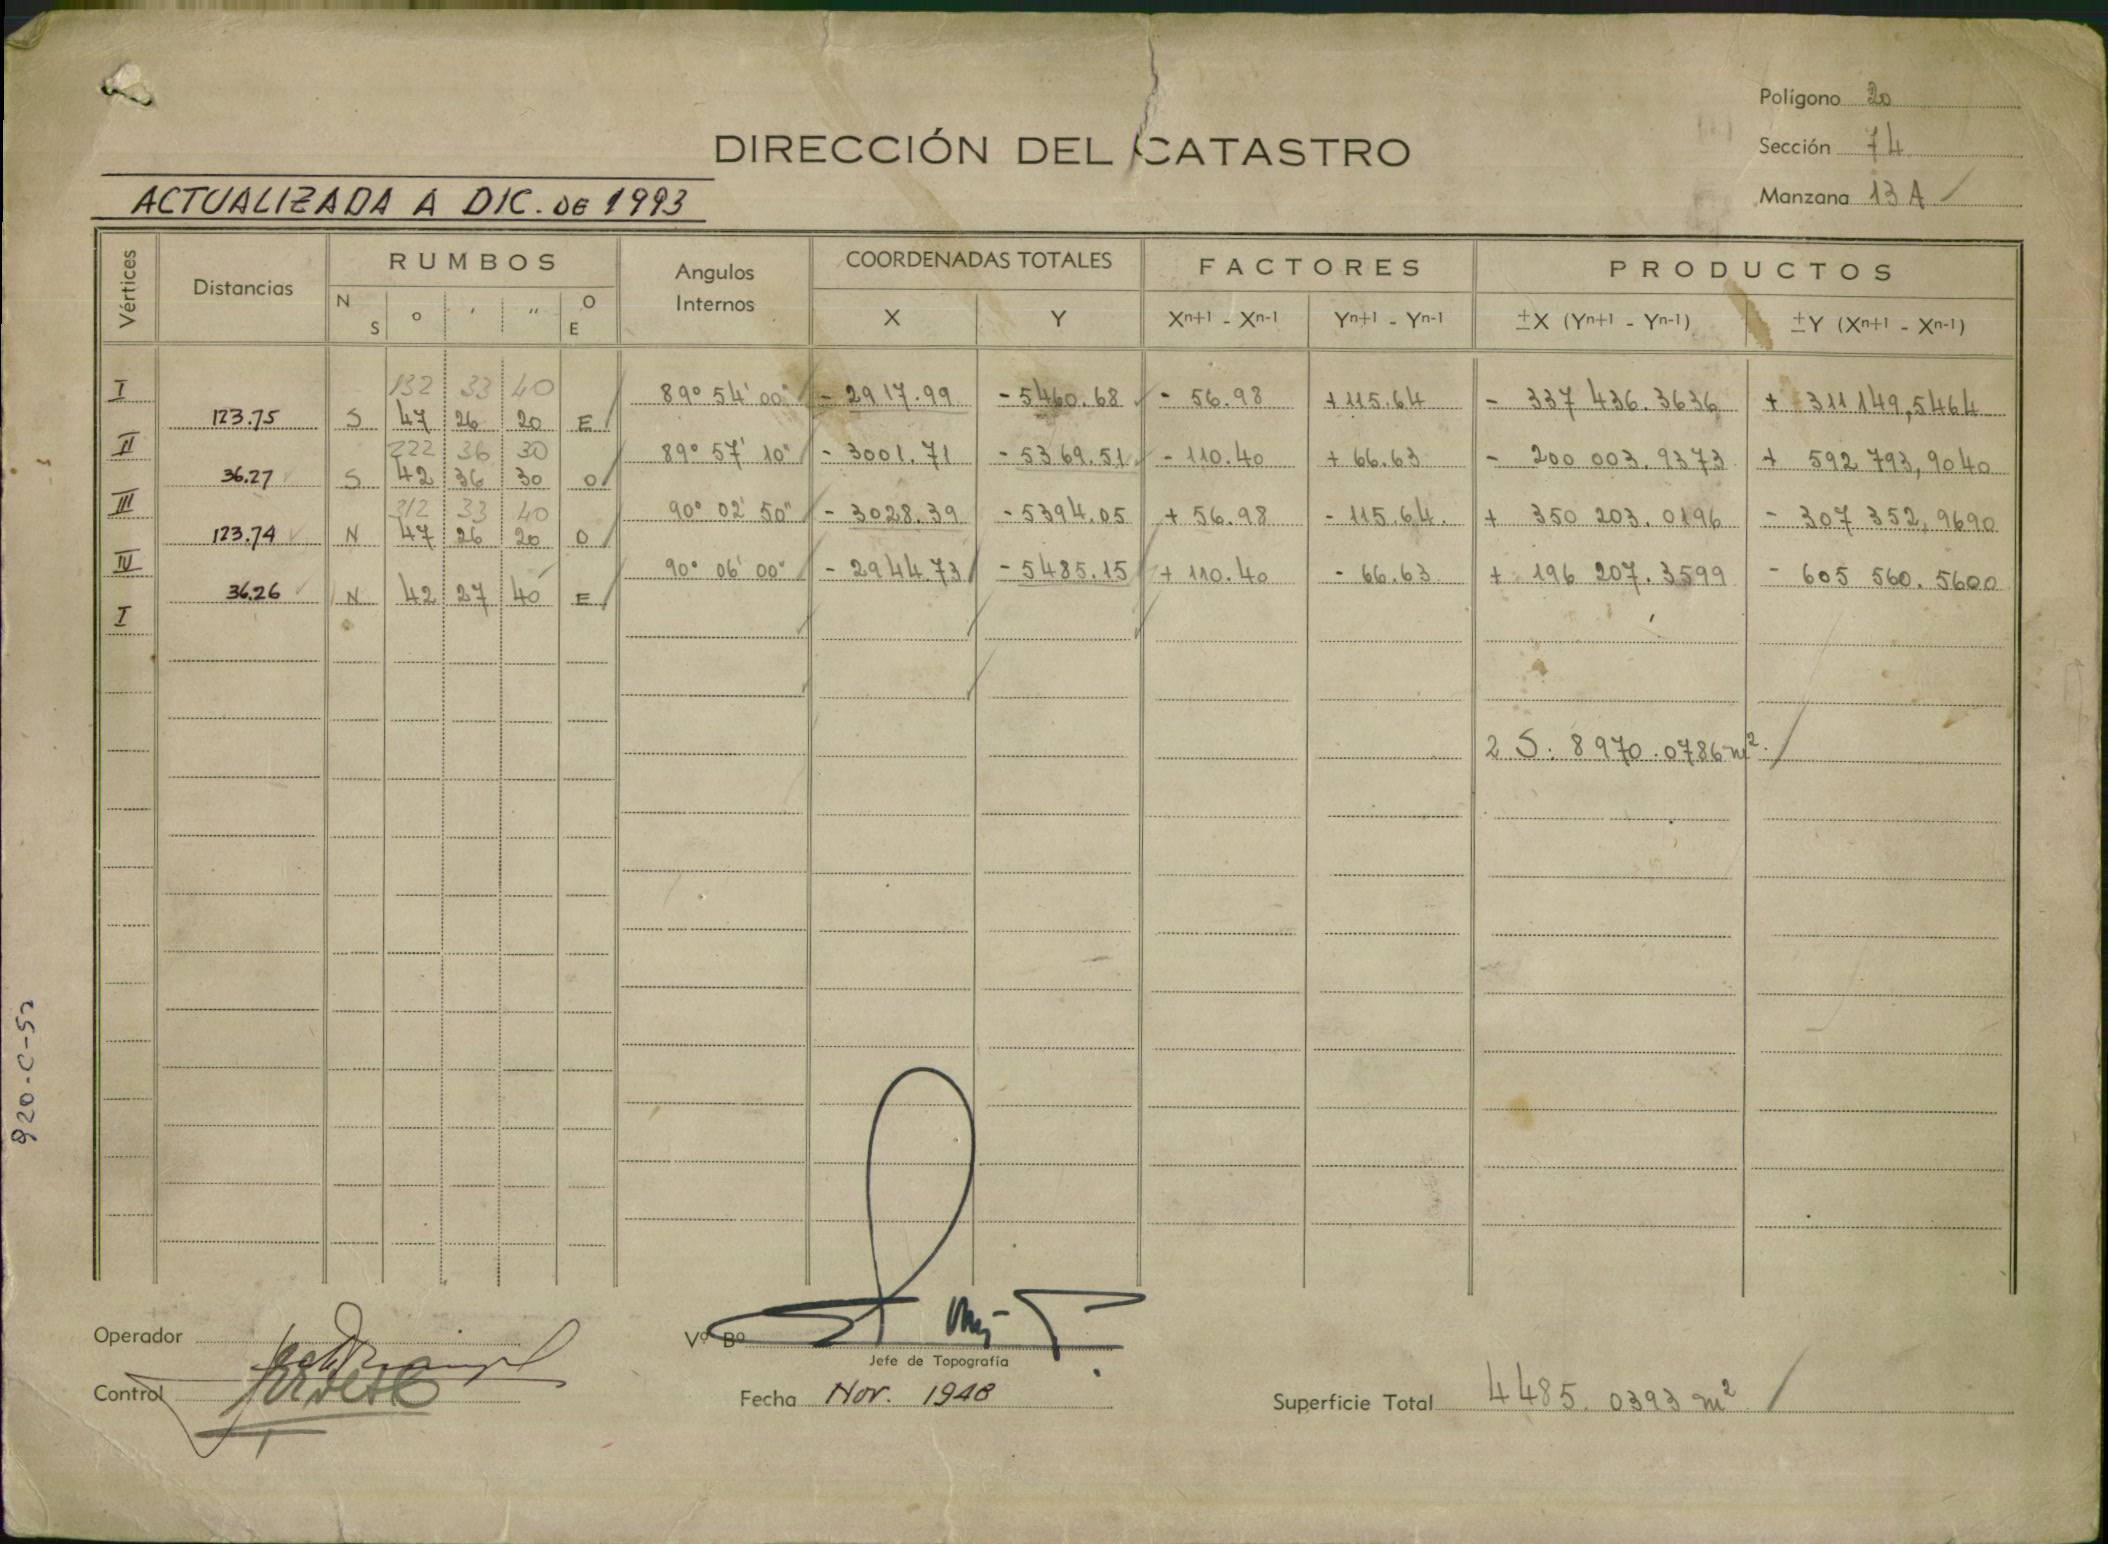 Polígono 20
DIRECCIÓN DEL CATASTRO
Sección 74
ACTUALIZADA A DIC. DE 1993
Manzana 13 A
Vértices Distancias RUMBOS Angulos Internos COORDENADAS TOTALES FACTORES PRODUCTOS
N S ° ' " O E X Y Xn+1 - Xn-1 Yn+1 - Yn-1 ±X (Yn+1 - Yn-1) ±Y (Xn+1 - Xn-1)
132 33 40
I 89° 54' 00" - 2917.99 - 5460.68 - 56.98 + 115.64 - 337 436.3636 + 311 149,5464
123.75 S 47 26 20 E
222 36 30
II 89° 57' 10" - 3001.71 - 5369.51 - 110.40 + 66.63 - 200 003.9373 + 592 793,9040
36.27 S 42 36 30 O
312 33 40
III 90° 02' 50" - 3028.39 - 5394.05 + 56.98 - 115.64. + 350 203.0196 - 307 352,9690
123.74 N 47 26 20 O
IV 90° 06' 00" - 2944.73 - 5485.15 + 110.40 - 66.63 + 196 207.3599 - 605 560.5600
36.26 N 42 27 40 E
I
2 S: 8970.0786 m².
920-C-52
Operador
Vº Bº
Jefe de Topografía
Control
Fecha Nov. 1948
Superficie Total 4485.0393 m²